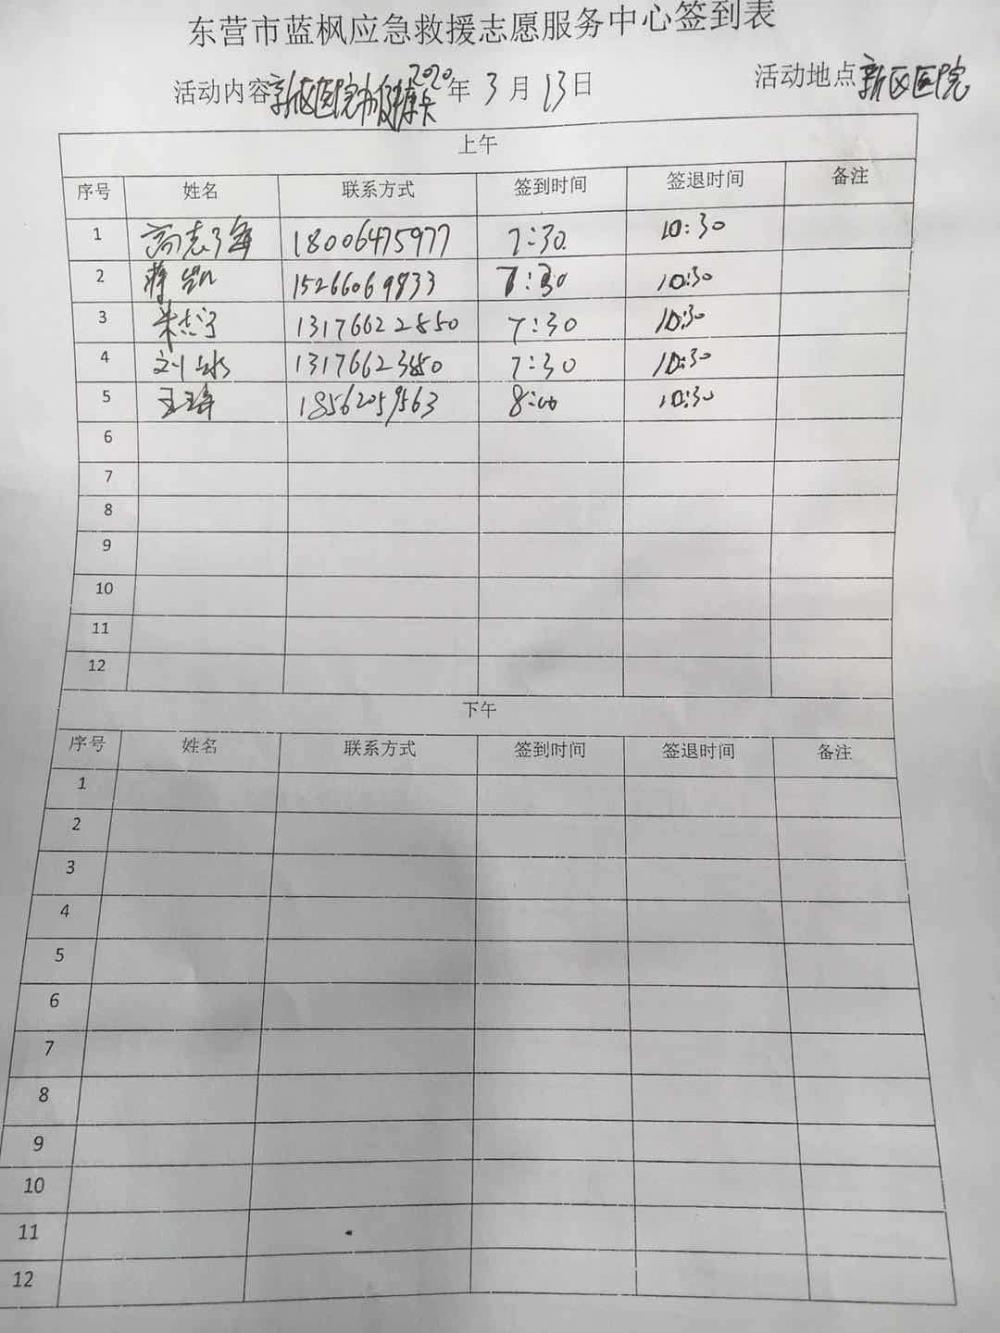 东营市蓝枫应急救援志愿服务中心签到表
活动内容 新区医院办健康卡 2020年 3月 13日 活动地点 新区医院
上午
序号 姓名 联系方式 签到时间 签退时间 备注
1 18006475977 7:30 10:30
2 蒋凯 15266069833 7:30 10:30
3 13176622850 7:30 10:30
4 刘冰 13176623850 7:30 10:30
5 王瑋 18562059563 8:00 10:30
6
7
8
9
10
11
12
下午
序号 姓名 联系方式 签到时间 签退时间 备注
1
2
3
4
5
6
7
8
9
10
11
12